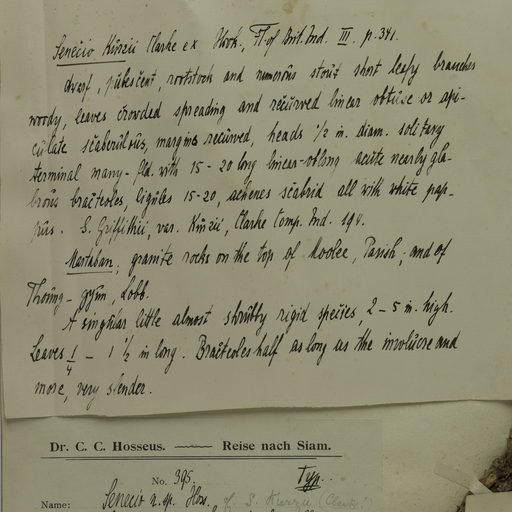 Senecio Kurzii Clarke ex Hook., Fl. of Brit. Ind. III. p. 341.
dwarf, pubescent, rootstock and numerous stout short leafy branches
woody, leaves crowded spreading and recurved linear obtuse or api-
culate scaberulous, margins recurved, heads 1/2 in. diam. solitary
terminal many-fld. with 15-20 long linear-oblong acute nearly gla-
brous bracteoles, ligules 15-20, achenes scabrid all with white pap-
pus. S. Griffithii, var. Kurzii, Clarke Comp. Ind. 198.
Martaban, granite rocks on the top of Moolee, Parish; and of
Thoung-gyun, Lobb.
A singular little almost shrubby rigid species, 2-5 in. high.
Leaves 1/4 - 1 1/2 in long. Bracteoles half as long as the involucre and
more, very slender.
Dr. C. C. Hosseus. Reise nach Siam.
No. 395. Typ.
Name: Senecio n. sp. Hoss. S. Kurzii (Clarke)